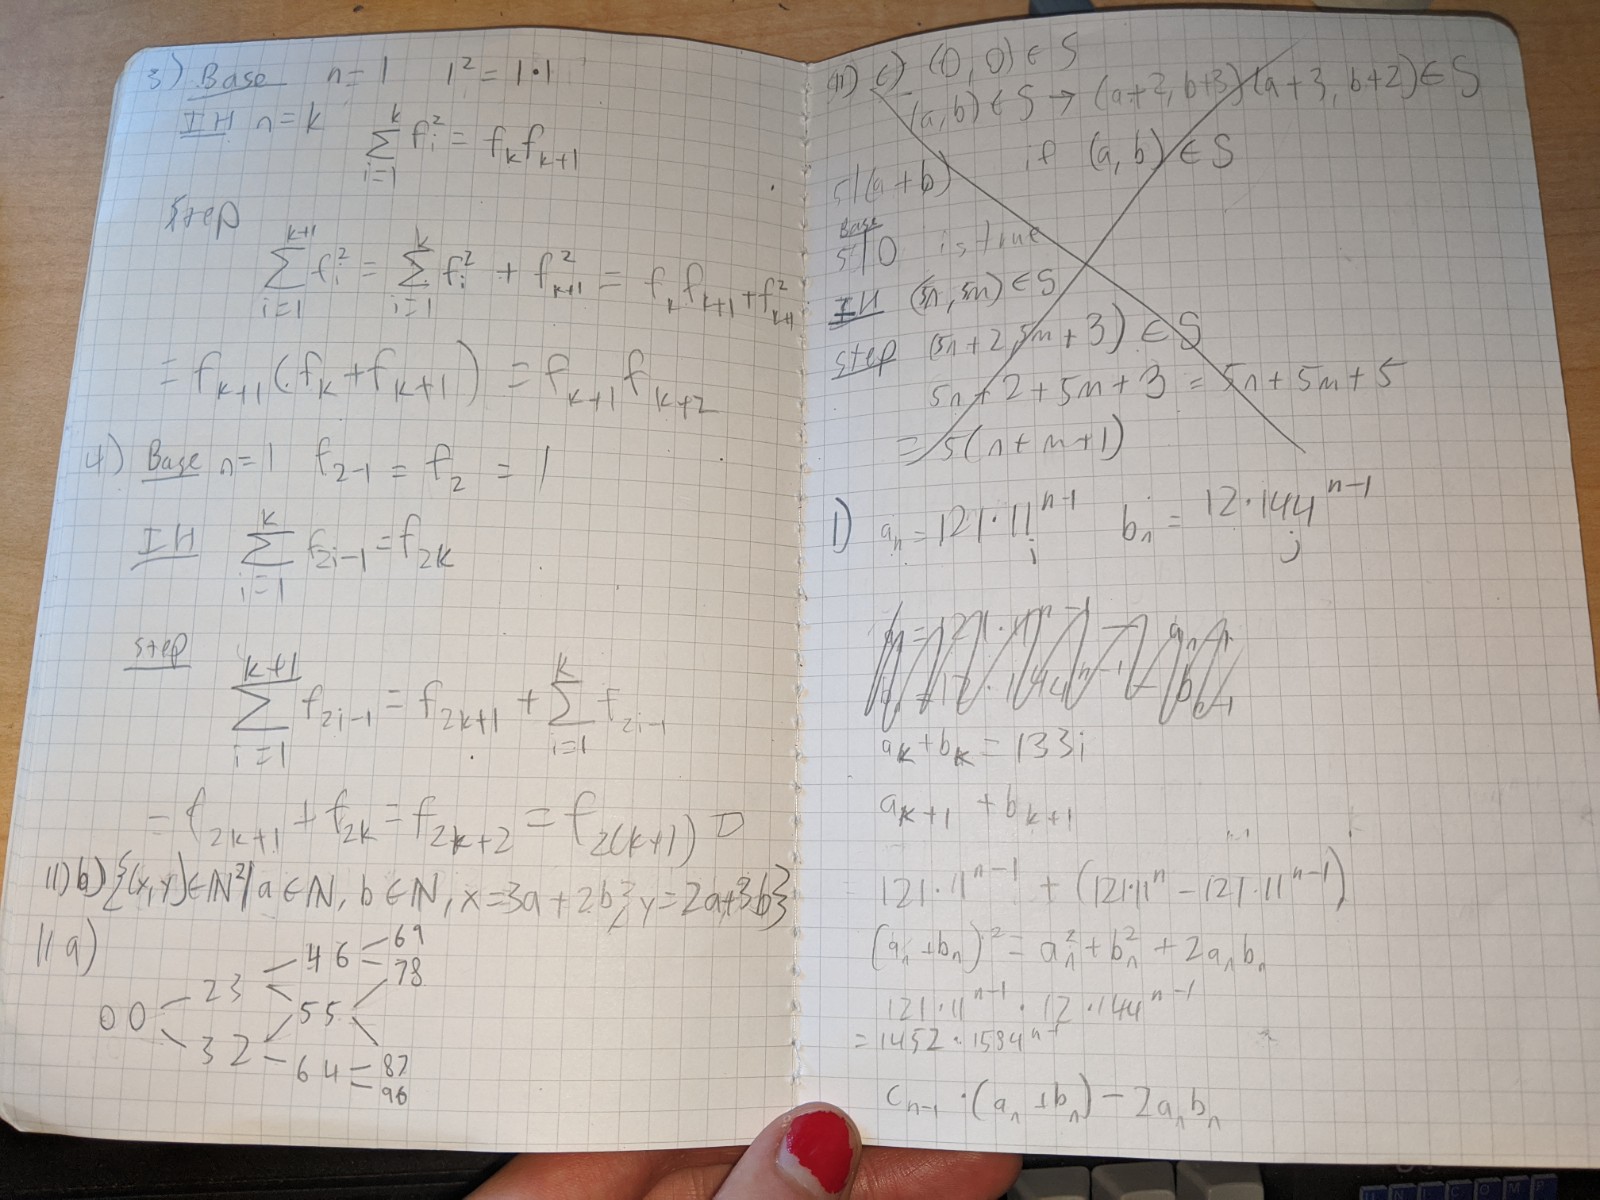 3) Base n=1 1² = 1·1
IH n=k \sum_{i=1}^{k} f_i^2 = f_k f_{k+1}
Step
\sum_{i=1}^{k+1} f_i^2 = \sum_{i=1}^{k} f_i^2 + f_{k+1}^2 = f_k f_{k+1} + f_{k+1}^2
= f_{k+1}(f_k + f_{k+1}) = f_{k+1} f_{k+2}
4) Base n=1 f_{2-1} = f_2 = 1
IH \sum_{i=1}^{k} f_{2i-1} = f_{2k}
step
\sum_{i=1}^{k+1} f_{2i-1} = f_{2k+1} + \sum_{i=1}^{k} f_{2i-1}
= f_{2k+1} + f_{2k} = f_{2k+2} = f_{2(k+1)} □
11)b) {(x,y)∈ℕ²| a∈ℕ, b∈ℕ, x=3a+2b, y=2a+3b}
11 a)
69
46
78
23
00
55
32
64
87
96
(0,0)∈S
(a,b)∈S → (a+2, b+3), (a+3, b+2)∈S
5|(a+b) if (a,b)∈S
Base
5|0 is true
IH (5n,5m)∈S
step (5n+2, 5m+3)∈S
5n+2+5m+3 = 5n+5m+5
= 5(n+m+1)
1) a_n = 121·11^{n-1} b_n = 12·144^{n-1}
i j
a_k+b_k = 133i
a_{k+1} + b_{k+1}
121·11^{n-1} + (121·11^n − 121·11^{n-1})
(a_n+b_n)² = a_n² + b_n² + 2a_n b_n
121·11^{n-1}·12·144^{n-1}
= 1452·1584^{n-1}
c_{n-1}·(a_n+b_n) − 2a_n b_n